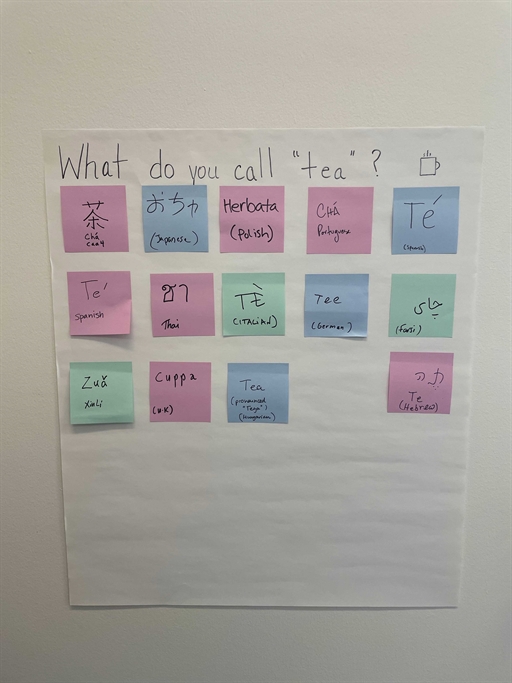 What do you call "tea"?
茶
Chá
おちゃ
(Japanese)
Herbata
(Polish)
CHÁ
Portuguese
Té
(Spanish)
Te´
Spanish
ชา
Thai
TÈ
(ITALIAN)
Tee
(German)
چای
(Farsi)
Zuǎ
Cuppa
(U.K)
Tea
(pronounced
"Taya")
(Hungarian)
תה
Te
(Hebrew)